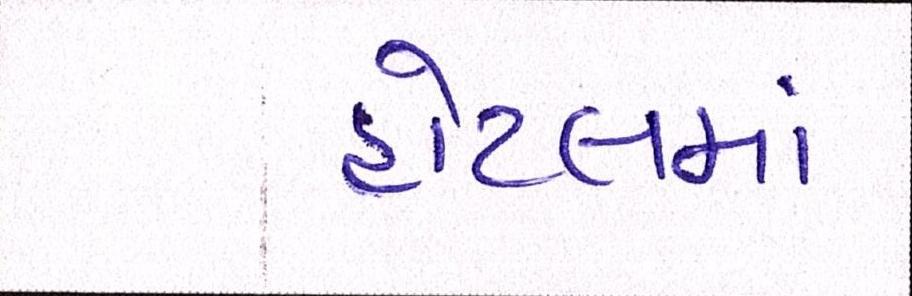 હોટલમાં